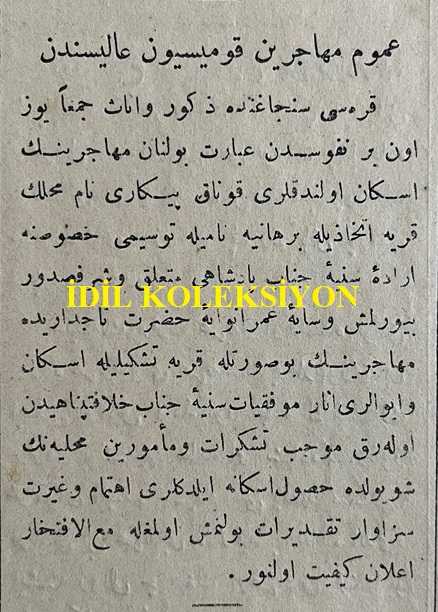 عموم مهاجرین قومیسیون عالیسندن
قره‌سی سنجاغنده ذکور واناث جمعاً یوز
اون بر نفوسدن عبارت بولنان مهاجرینك
اسکان اولندقلری قوناق پیکاری نام محلك
قریه اتخاذیله برهانیه نامیله توسیمی خصوصنه
ارادهٔ سنیهٔ جناب پادشاهی متعلق وشرفصدور
İDİL KOLEKSİYON
بیورلمش وسایهٔ عمرانوایهٔ حضرت تاجداریده
مهاجرینك بوصورتله قریه تشکیلیله اسکان
وایوالری انار موفقیات سنیهٔ جناب خلافتپناهیدن
اوله‌رق موجب تشکرات ومأمورین محلیه‌نك
شویولده حصول اسکانه ایلدکلری اهتمام وغیرت
سزاوار تقدیرات بولنمش اولمغله مع الافتخار
اعلان کیفیت اولنور.